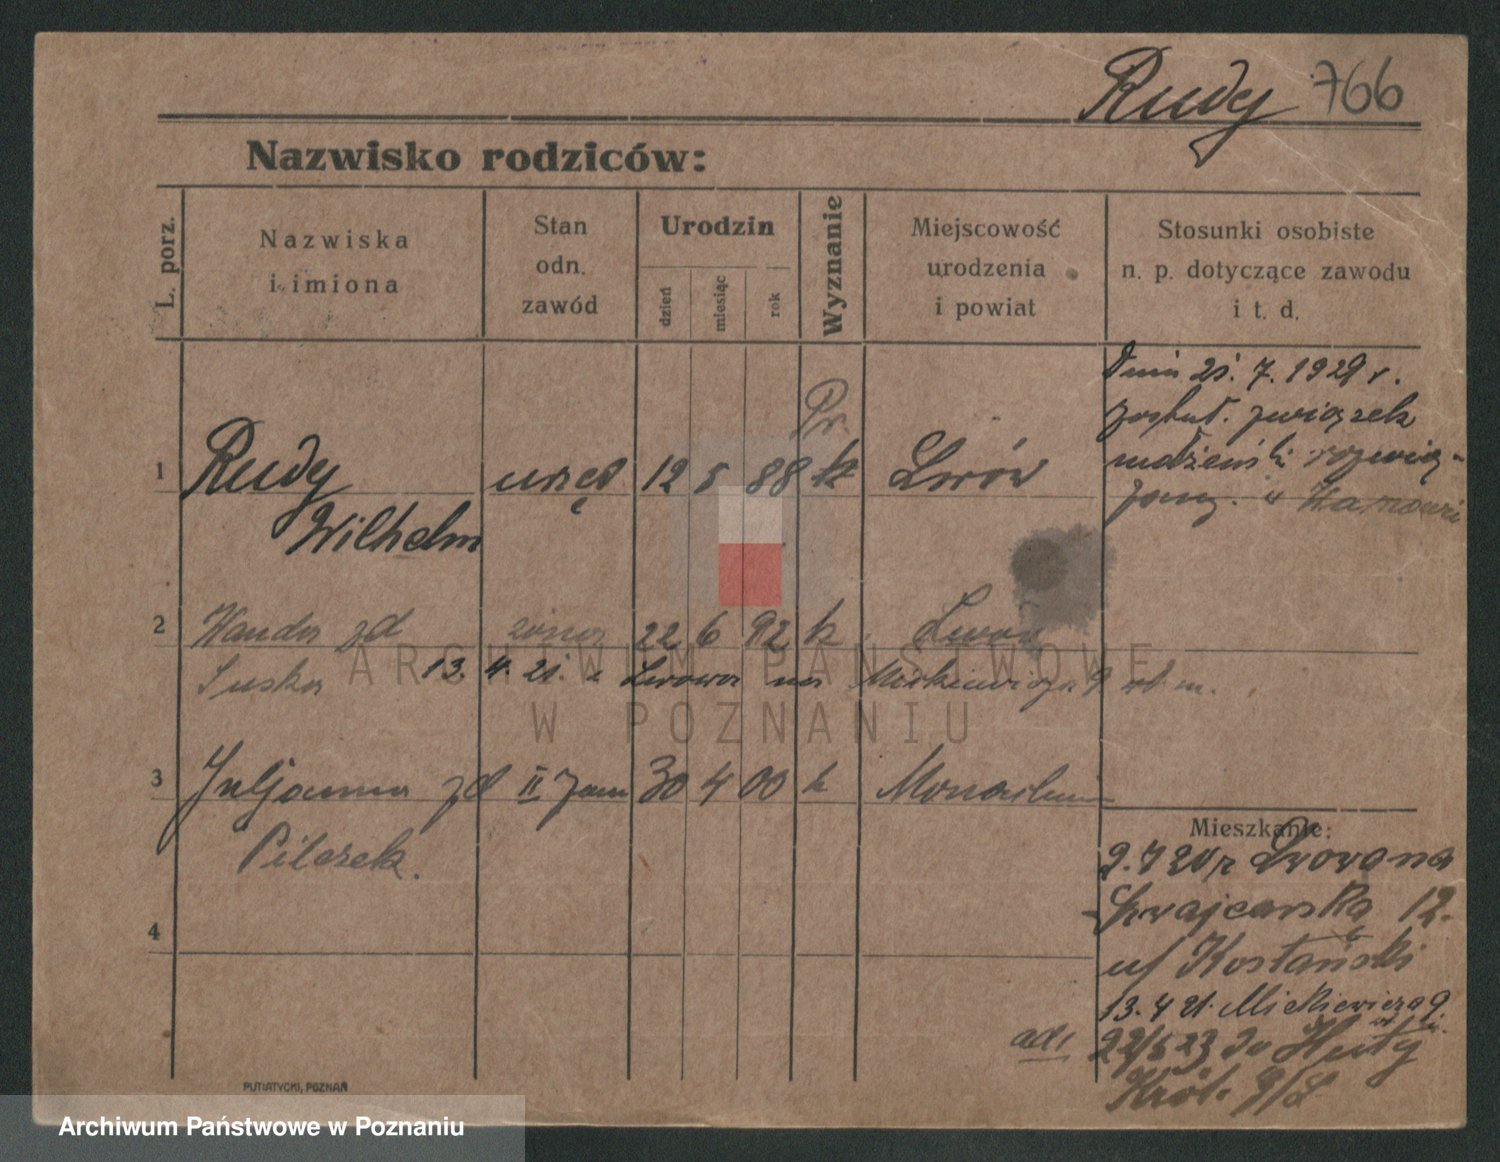 Rudy 766
Nazwisko rodziców:
L. porz.
Nazwiska
i imiona
Stan
odn.
zawód
Urodzin
dzień
miesiąc
rok
Wyznanie
Miejscowość
urodzenia
i powiat
Stosunki osobiste
n. p. dotyczące zawodu
i t. d.
Dnia 25. 7. 1929 r.
został. związek
małżeński rozwią-
zany. w
Pr.
1 Rudy urzęd 12 5 88 k Lwów
Wilhelm
2 Wanda zd żona 22 6 92 k Lwów
Suska 13. 4. 21. z Lwowa na Mickiewicza 9
3 Juljanna zd II żona 30 4 00 k Monachium
Pilczek.
4
Mieszkanie:
2. 7 20 z Lwowa na
Szwajcarska 12.
u/ Kostański
13. 4 21. Mickiewicza 9
ad 1 22/5 23 do Huty
Król. G/S
PUTIATYCKI, POZNAŃ
ARCHIWUM PAŃSTWOWE
W POZNANIU
Archiwum Państwowe w Poznaniu